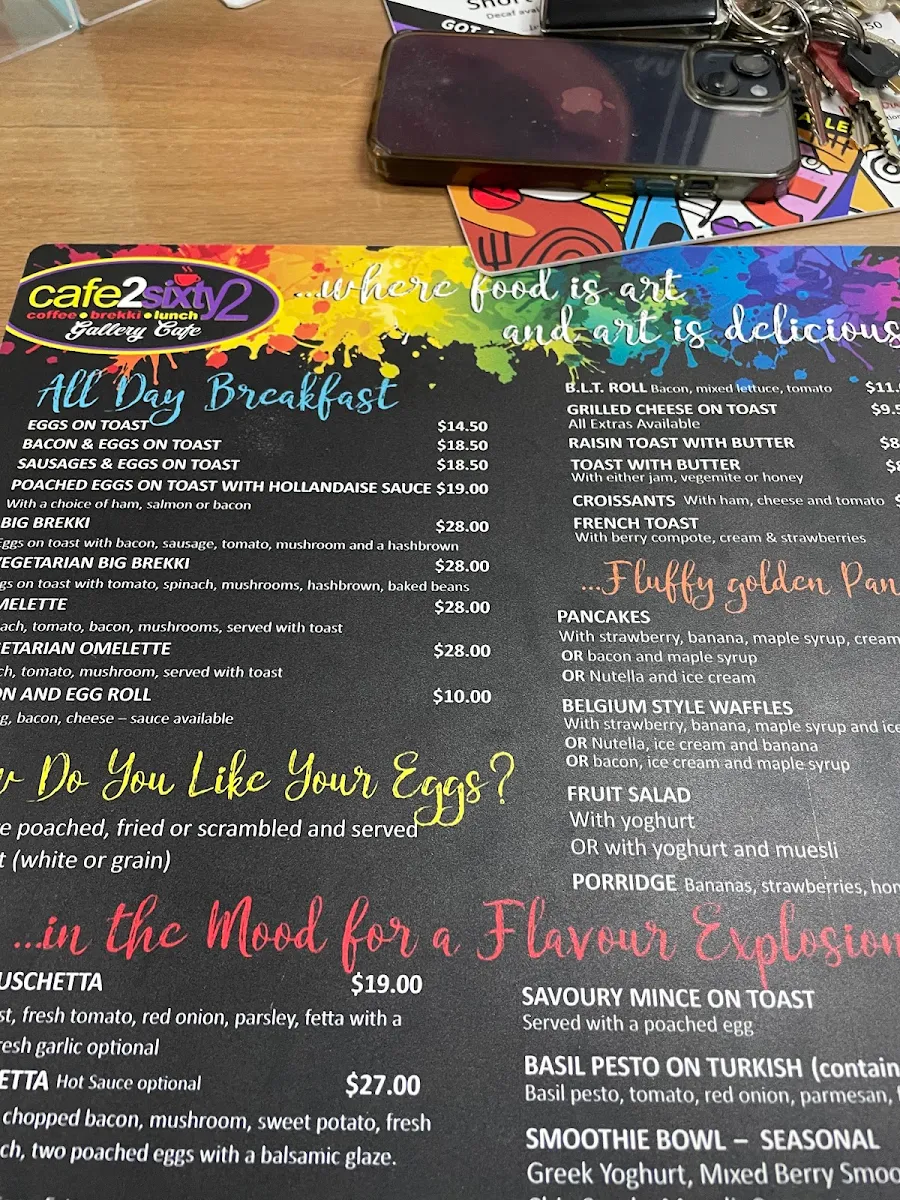 Decaf avai
GOT
cafe2sixty2
coffee • brekki • lunch
Gallery Cafe
...where food is art
and art is delicious
All Day Breakfast
EGGS ON TOAST $14.50
BACON & EGGS ON TOAST $18.50
SAUSAGES & EGGS ON TOAST $18.50
POACHED EGGS ON TOAST WITH HOLLANDAISE SAUCE $19.00
With a choice of ham, salmon or bacon
BIG BREKKI $28.00
Eggs on toast with bacon, sausage, tomato, mushroom and a hashbrown
VEGETARIAN BIG BREKKI $28.00
gs on toast with tomato, spinach, mushrooms, hashbrown, baked beans
MELETTE $28.00
ach, tomato, bacon, mushrooms, served with toast
ETARIAN OMELETTE $28.00
ch, tomato, mushroom, served with toast
ON AND EGG ROLL $10.00
g, bacon, cheese – sauce available
w Do You Like Your Eggs?
re poached, fried or scrambled and served
t (white or grain)
B.L.T. ROLL Bacon, mixed lettuce, tomato $11.
GRILLED CHEESE ON TOAST $9.5
All Extras Available
RAISIN TOAST WITH BUTTER $8
TOAST WITH BUTTER $8
With either jam, vegemite or honey
CROISSANTS With ham, cheese and tomato $
FRENCH TOAST
With berry compote, cream & strawberries
...Fluffy golden Pan
PANCAKES
With strawberry, banana, maple syrup, cream
OR bacon and maple syrup
OR Nutella and ice cream
BELGIUM STYLE WAFFLES
With strawberry, banana, maple syrup and ice
OR Nutella, ice cream and banana
OR bacon, ice cream and maple syrup
FRUIT SALAD
With yoghurt
OR with yoghurt and muesli
PORRIDGE Bananas, strawberries, hon
...in the Mood for a Flavour Explosion
USCHETTA $19.00
st, fresh tomato, red onion, parsley, fetta with a
resh garlic optional
ETTA Hot Sauce optional $27.00
chopped bacon, mushroom, sweet potato, fresh
ch, two poached eggs with a balsamic glaze.
SAVOURY MINCE ON TOAST
Served with a poached egg
BASIL PESTO ON TURKISH (contain
Basil pesto, tomato, red onion, parmesan,
SMOOTHIE BOWL – SEASONAL
Greek Yoghurt, Mixed Berry Smoo